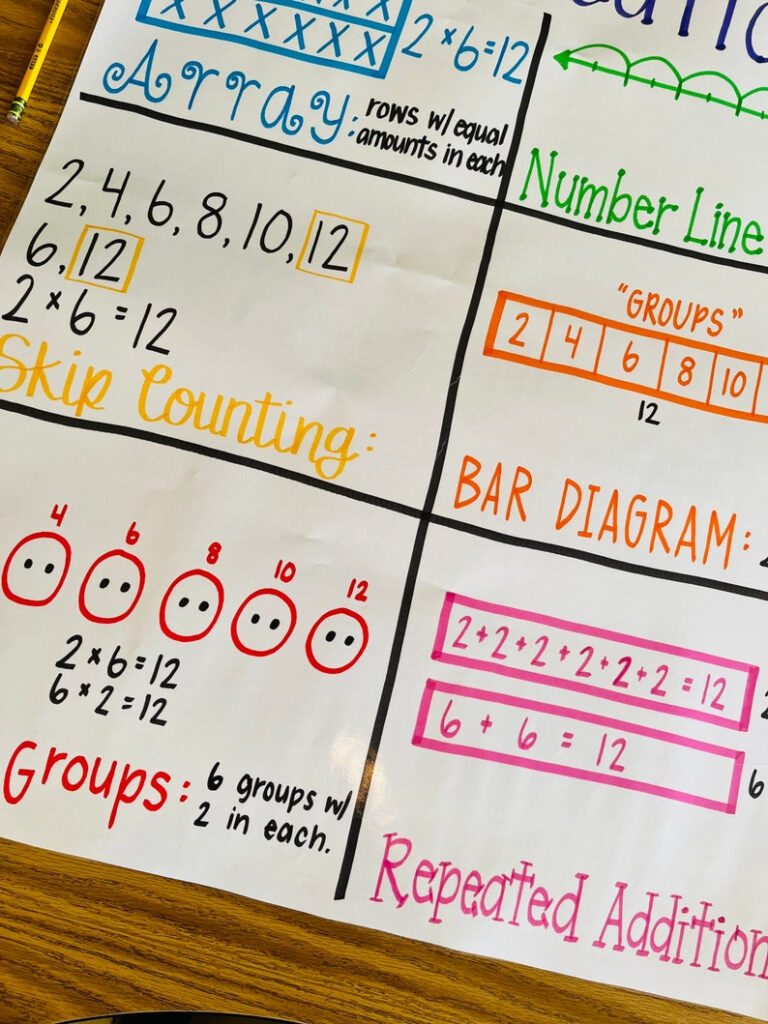 X X
X X X X X X
2 × 6 = 12
Array:
rows w/ equal
amounts in each
Number Line
2, 4, 6, 8, 10, 12
6, 12
2 × 6 = 12
Skip Counting:
"GROUPS"
2 4 6 8 10
12
BAR DIAGRAM:
4 6 8 10 12
2 × 6 = 12
6 × 2 = 12
Groups:
6 groups w/
2 in each.
2+2+2+2+2+2 = 12
6 + 6 = 12
6
Repeated Addition